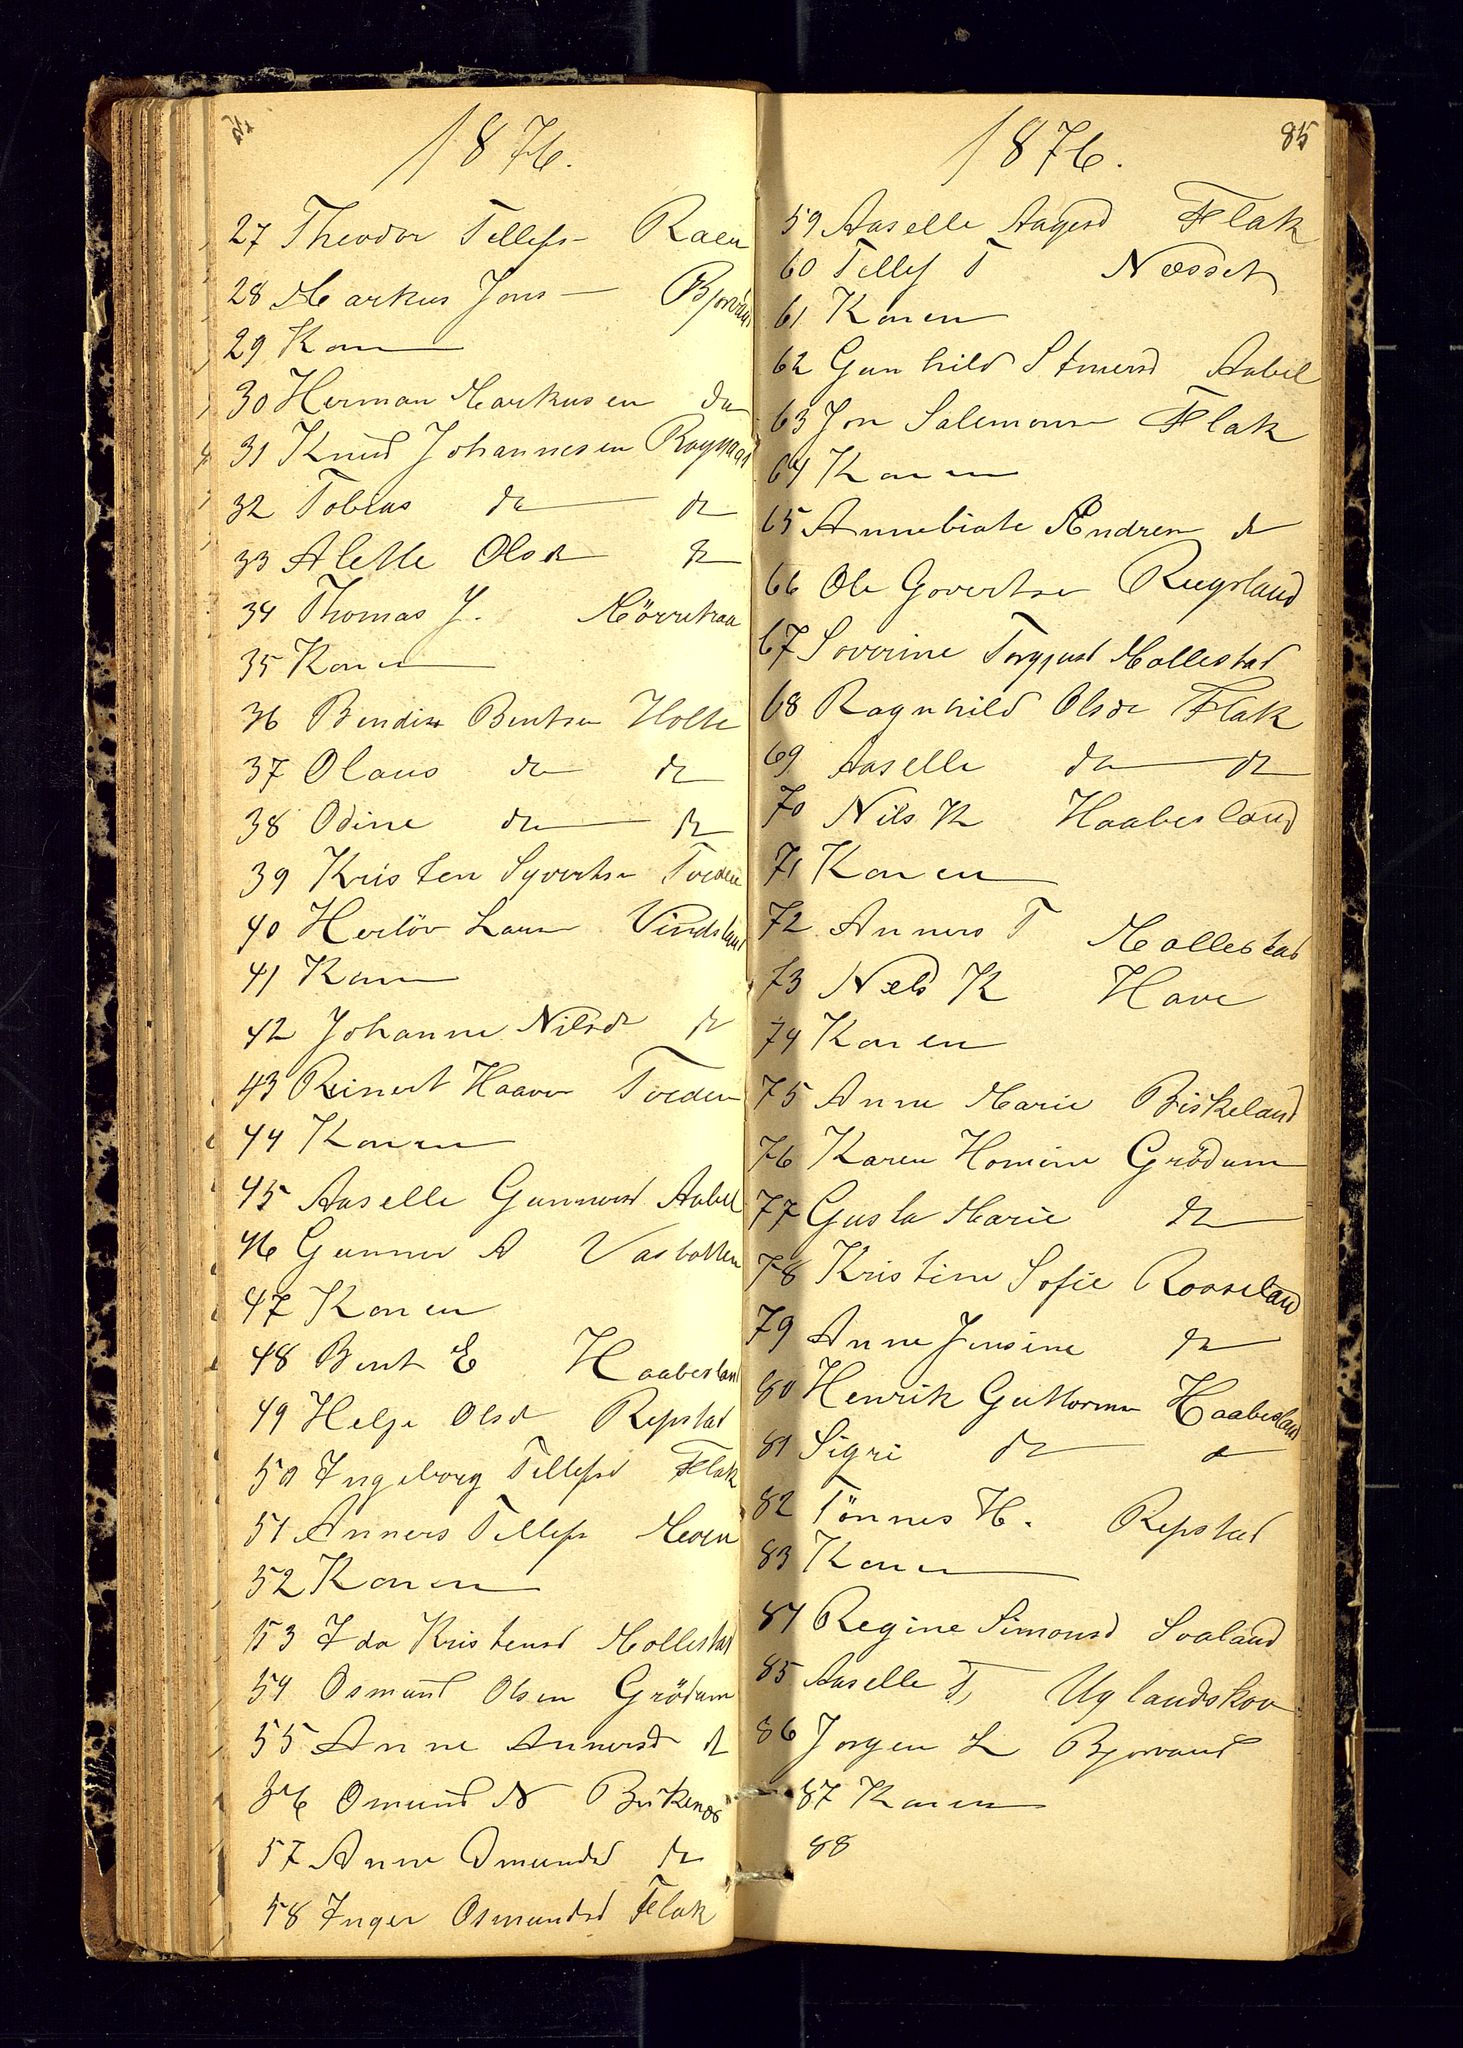 1876.
27 Theodor Tellefs- Raen
28 Markus Jons- Bjorvand
29 Kon
30 Herman Markusen do
31 Knud Johannesen
32 Tobias do do
33 Alette Olsd do
34 Thomas J.
35 Konen
36 Bendix Bentsen Holte
37 Olaus do do
38 Odine do do
39 Kristen Syvertsen Tveden
40 Herlöv Larsen Vindsland
41 Konen
42 Johanne Nilsd do
43 Reinert Haavor Tveden
44 Konen
45 Aaselle Gunnersd Aabel
46 Gunner A Vasbotten
47 Konen
48 Bent E Haabesland
49 Helje Olsd Repstad
50 Ingeborg Tellefsd Flak
51 Anners Tellefs Moen
52 Konen
53 Ida Kristensd Mollestad
54 Osmund Olsen Grödum
55 Anne Annersd do
56 Omund N Birkenes
57 Anne Omundsd do
58 Inger Osmundsd Flak
85
1876.
59 Aaselle Aagesd Flak
60 Tellef T Næsset
61 Konen
62 Gunhild Aabel
63 Jon Salemonsen Flak
64 Konen
65 Annebiate Andrea do
66 Ole Govertsen Rugsland
67 Soverine Torgjusd Mollestad
68 Ragnhild Olsdr Flak
69 Aaselle do do
70 Nils K Haabesland
71 Konen
72 Anners T Mollestad
73 Nels K Have
74 Konen
75 Anne Marie Birkeland
76 Karen Homine Grödum
77 Gusta Marie do
78 Kristine Sofie Rosseland
79 Anne Jensine do
80 Henrik Guttormsen Haabesland
81 Sigri do do
82 Tönnes H. Repstad
83 Konen
84 Regine Simonsd Svaland
85 Aaselle T, Uglandskov
86 Jorgen L Bjorvand
87 Konen
88